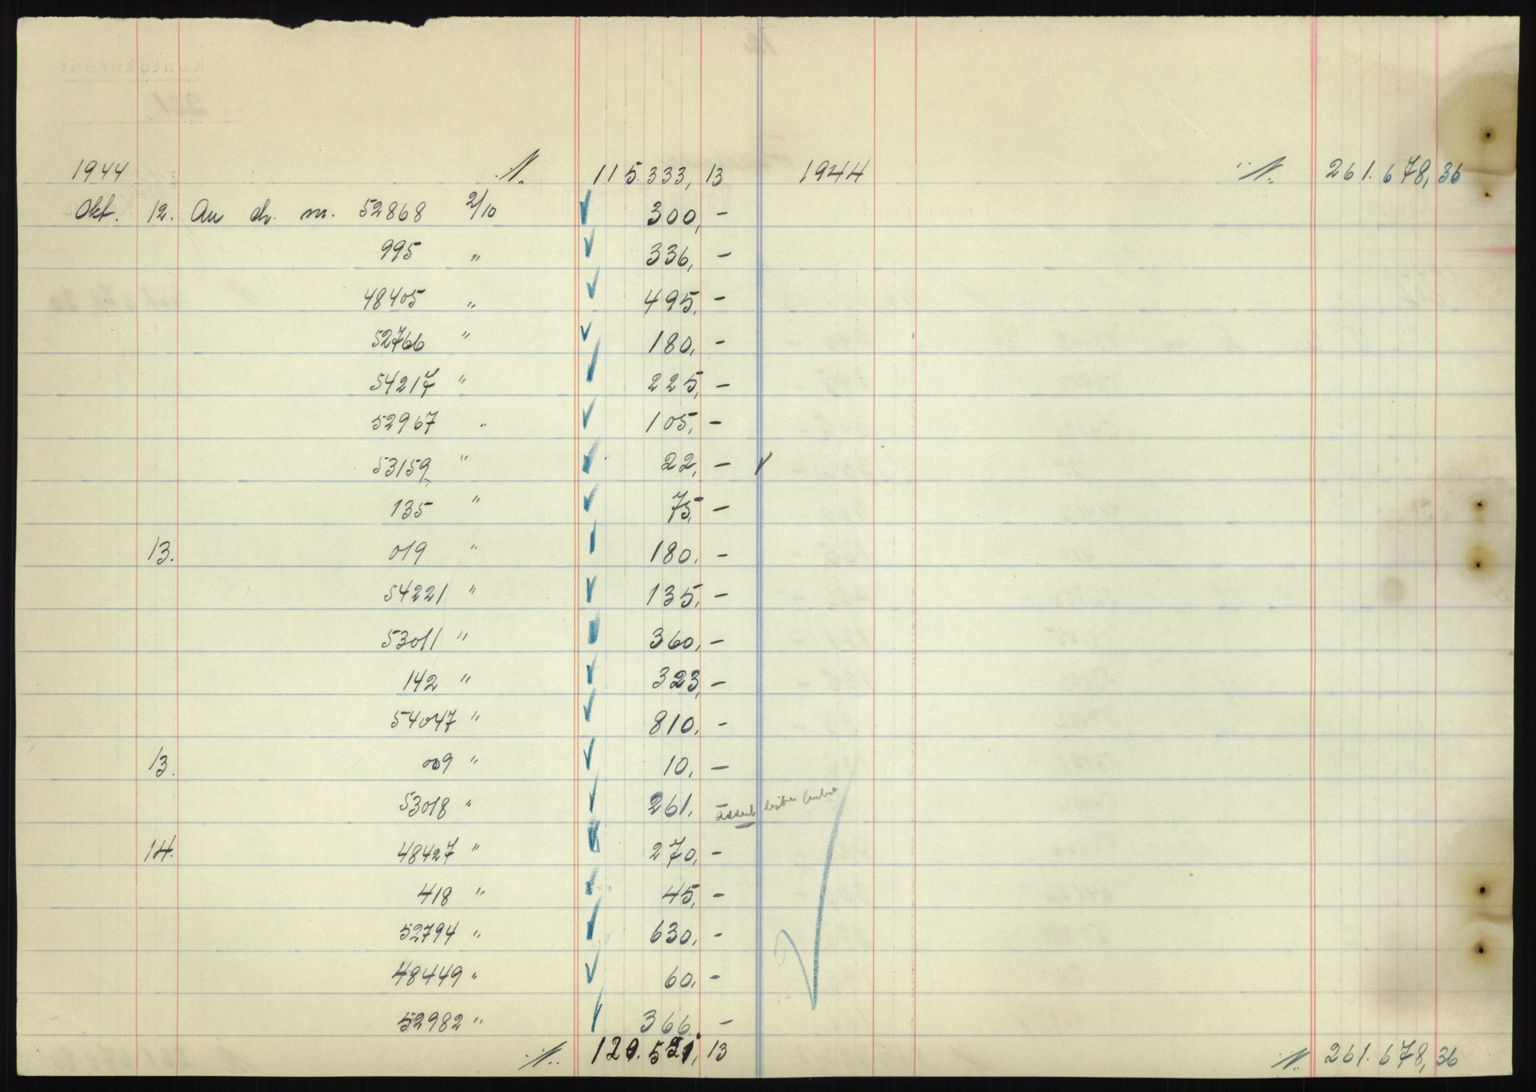 1944 ./. 115.333,13 1944 ./. 261.678,36
Okt. 12. An ch. m. 52868 2/10 300,-
995 " 336,-
48405 " 495,-
52766 " 180,-
54217 " 225,-
52967 " 105,-
53159 " 22,-
135 " 75,-
13. 019 " 180,-
54221 " 135,-
53011 " 360,-
142 " 323,-
54047 " 810,-
13. 009 " 10,-
53018 " 261,-
14. 48427 " 270,-
418 " 45,-
52794 " 630,-
48449 " 60,-
52982 " 366,-
./. 120.521,13 ./. 261.678,36